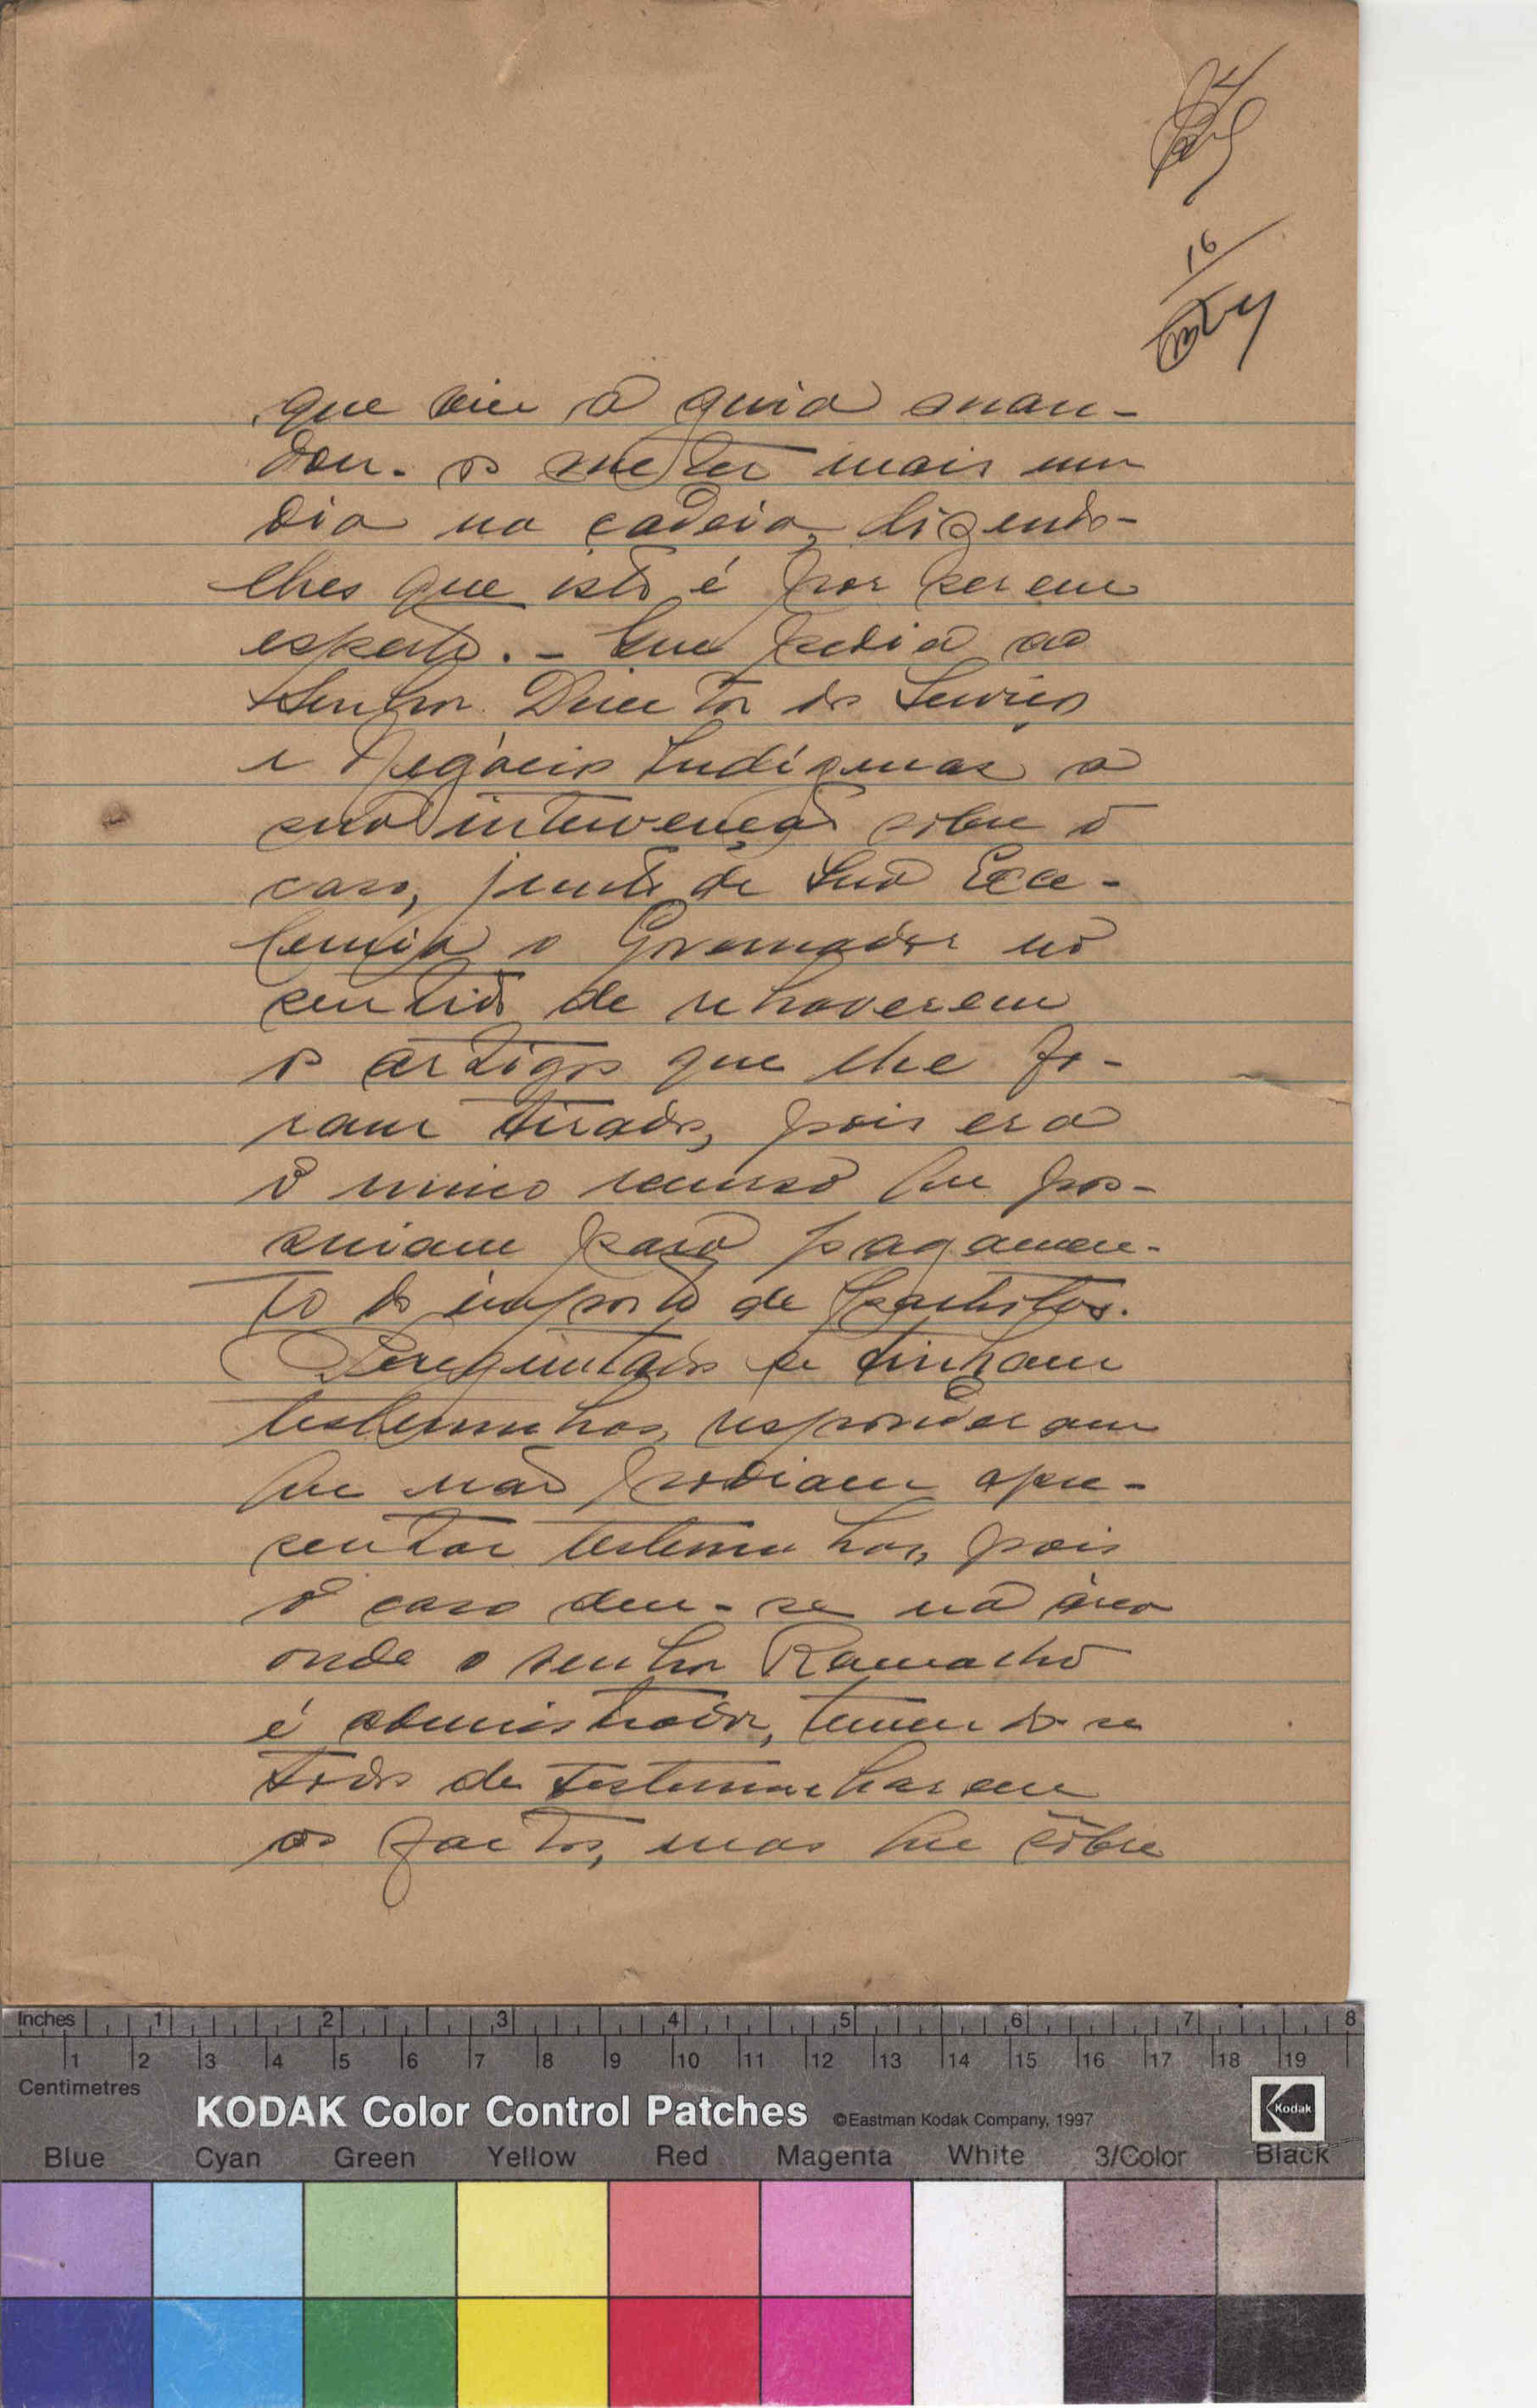 16
que viu a guia man-
dou-os meter mais um
dia na cadeia, dizendo-
lhes que isto é por serem
esperto. - Que pedia ao
Senhor Director dos Serviços
e Negócios Indígenas a
sua intervenção sôbre o
caso, junto de Sua Exce-
lencia o Governador no
sentido de rehaverem
os artigos que lhe fo-
ram tirados, pois era
o unico recurso que pos-
suiam para pagamen-
to do imposto de
Preguntados se tinham
testemunhas, responderam
que não podiam apre-
sentar testemunhas, pois
o caso deu-se na área
onde o senhor Ramacho
é administrador, temendo-se
todos de testemunharem
os factos, mas que sôbre
Inches 1 2 3 4 5 6 7 8
1 2 3 4 5 6 7 8 9 10 11 12 13 14 15 16 17 18 19
Centimetres
KODAK Color Control Patches ©Eastman Kodak Company, 1997
Kodak
Blue Cyan Green Yellow Red Magenta White 3/Color Black